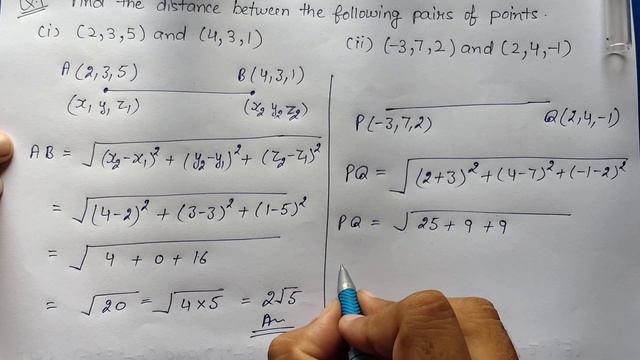 Q.1 Find the distance between the following pairs of points.
(i) (2,3,5) and (4,3,1)
A(2,3,5) B(4,3,1)
(x₁ y₁ z₁) (x₂ y₂ z₂)
AB = √((x₂-x₁)² + (y₂-y₁)² + (z₂-z₁)²)
= √((4-2)² + (3-3)² + (1-5)²)
= √(4 + 0 + 16)
= √20 = √(4×5) = 2√5
Ans
(ii) (-3,7,2) and (2,4,-1)
P(-3,7,2) Q(2,4,-1)
PQ = √((2+3)² + (4-7)² + (-1-2)²)
PQ = √(25 + 9 + 9)